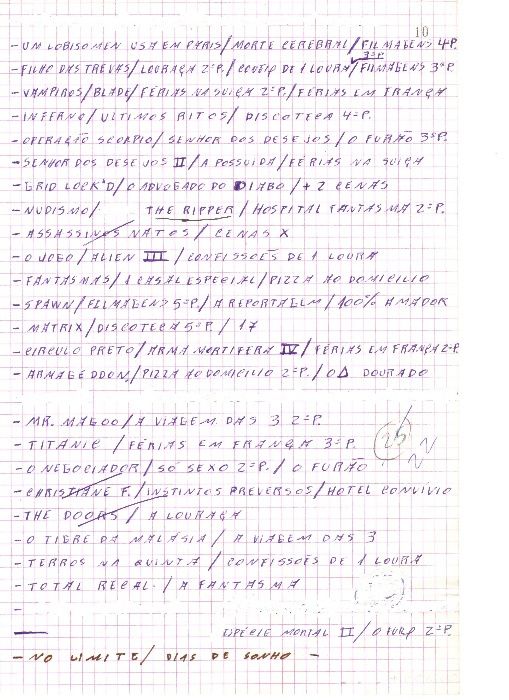 10
- UM LOBISOMEN USA EM PARIS / MORTE CEREBRAL / FILMAGENS 4ªP.
3ªP.
- FILHO DAS TREVAS / LOURAÇA 2ªP. / CONFIÇ DE 1 LOURA / FILMAGENS 3ªP.
- VAMPIROS / BLADE / FÉRIAS NA SUIÇA 2ªP. / FÉRIAS EM FRANÇA
- INFERNO / ULTIMOS RITOS / DISCOTECA 4ªP.
- OPERAÇÃO SCORPIO / SENHOR DOS DESEJOS / O FURÃO 3ªP.
- SENHOR DOS DESEJOS II / A POSSUIDA / FÉRIAS NA SUIÇA
- GRID LOCK'D / O ADVOGADO DO DIABO / + 2 CENAS
- NUDISMO / THE RIPPER / HOSPITAL FANTASMA 2ªP.
- ASSASSINOS NATOS / CENAS X
- O JOGO / ALIEN III / CONFISSÕES DE 1 LOURA
- FANTASMAS / 1 CASAL ESPECIAL / PIZZA AO DOMICILIO
- SPAWN / FILMAGENS 5ªP. / A REPORTAGEM / 100% AMADOR
- MATRIX / DISCOTECA 5ªP. / 17
- CIRCULO PRETO / ARMA MORTIFERA IV / FÉRIAS EM FRANÇA 2ªP.
- ARMAGEDDON / PIZZA AO DOMICILIO 2ªP. / O Δ DOURADO
- MR. MAGOO / A VIAGEM DAS 3 2ªP.
- TITANIC / FÉRIAS EM FRANÇA 3ªP. 25
- O NEGOCIADOR / SÓ SEXO 2ªP. / O FURÃO
- CHRISTIANE F. / INSTINTOS PREVERSOS / HOTEL CONVIVIO
- THE DOORS / A LOURAÇA
- O TIGRE DA MALÁSIA / A VIAGEM DAS 3
- TERROS NA QUINTA / CONFISSÕES DE 1 LOURA
- TOTAL RECAL. / A FANTASMA
-
ESPÉCIE MORTAL II / O FURÃ 2ªP.
- NO LIMITE / DIAS DE SONHO -